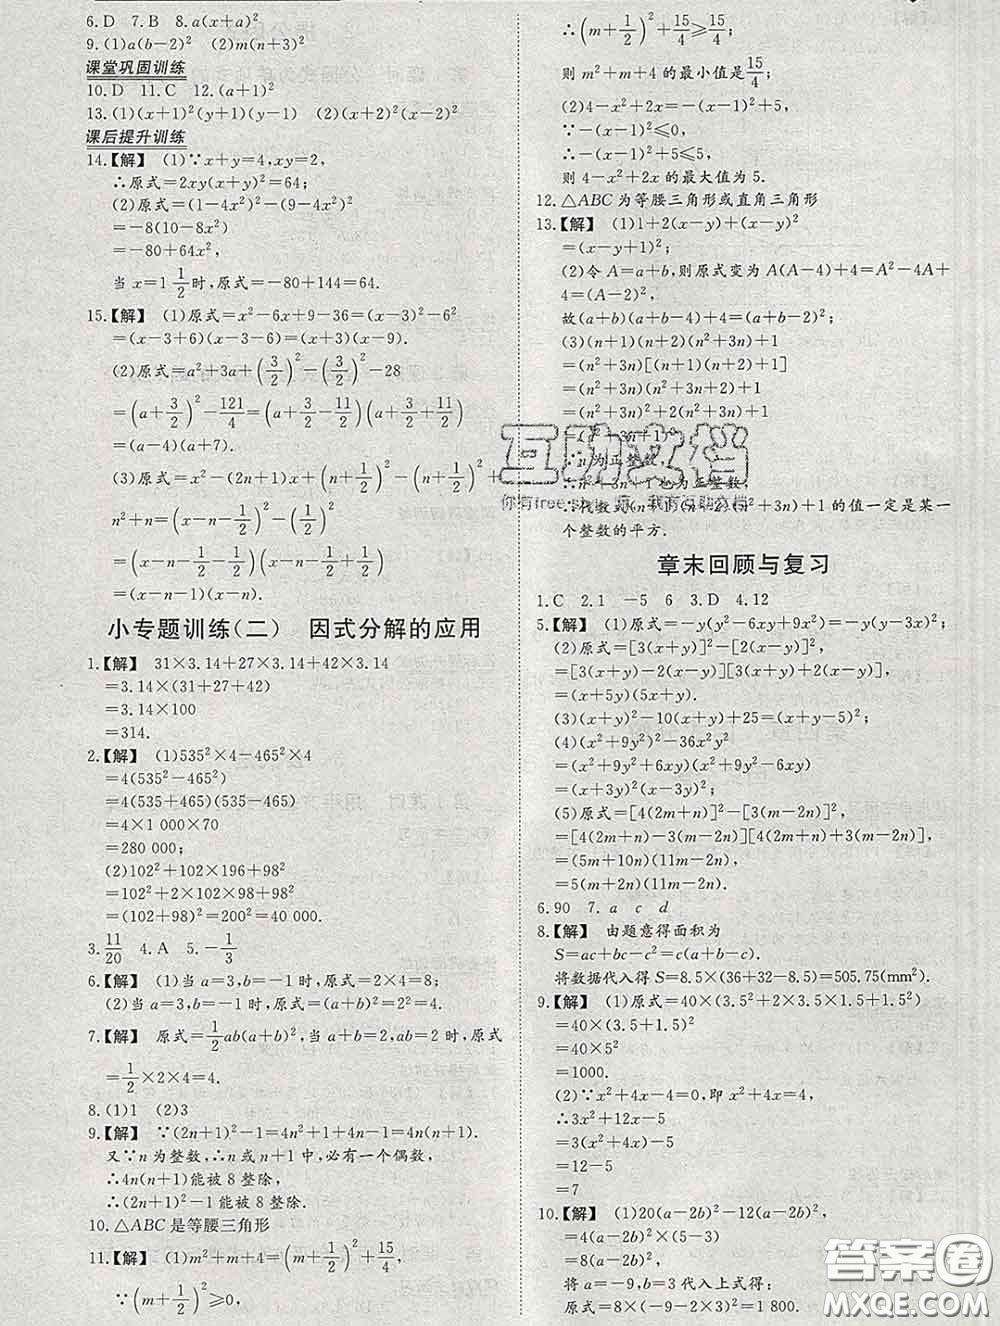 6.D 7.B 8.a(x+a)²
9.(1)a(b-2)² (2)m(n+3)²
课堂巩固训练
10.D 11.C 12.(a+1)²
13.(1)(x+1)²(y+1)(y-1) (2)(x+2)²(x-2)²
课后提升训练
14.【解】 (1)∵x+y=4,xy=2,
∴原式=2xy(x+y)²=64;
(2)原式=(1-4x²)²-(9-4x²)²
=-8(10-8x²)
=-80+64x²,
当 x=1 1/2 时,原式=-80+144=64.
15.【解】 (1)原式=x²-6x+9-36=(x-3)²-6²
=(x-3+6)(x-3-6)=(x+3)(x-9).
(2)原式=a²+3a+(3/2)²-(3/2)²-28
=(a+3/2)²-121/4=(a+3/2-11/2)(a+3/2+11/2)
=(a-4)(a+7).
(3)原式=x²-(2n+1)x+(n+1/2)²-(n+1/2)²+
n²+n=(x-n-1/2)²-(1/2)²
=(x-n-1/2-1/2)(x-n-1/2+1/2)
=(x-n-1)(x-n).
小专题训练(二) 因式分解的应用
1.【解】 31×3.14+27×3.14+42×3.14
=3.14×(31+27+42)
=3.14×100
=314.
2.【解】 (1)535²×4-465²×4
=4(535²-465²)
=4(535+465)(535-465)
=4×1 000×70
=280 000;
(2)102²+102×196+98²
=102²+2×102×98+98²
=(102+98)²=200²=40 000.
3.11/20 4.A 5.-1/3
6.【解】 (1)当 a=3,b=-1 时,原式=2×4=8;
(2)当 a=3,b=-1 时,原式=(a+b)²=2²=4.
7.【解】 原式=1/2ab(a+b)²,当 a+b=2,ab=2 时,原式
=1/2×2×4=4.
8.(1)1 (2)3
9.【解】 ∵(2n+1)²-1=4n²+1+4n-1=4n(n+1).
又∵n 为整数,∴n 或 n+1 中,必有一个偶数,
∴4n(n+1)能被 8 整除.
∴(2n+1)²-1 能被 8 整除.
10.△ABC 是等腰三角形
11.【解】 (1)m²+m+4=(m+1/2)²+15/4,
∵(m+1/2)²≥0,
∴(m+1/2)²+15/4≥15/4;
则 m²+m+4 的最小值是15/4;
(2)4-x²+2x=-(x-1)²+5,
∵-(x-1)²≤0,
∴-(x-1)²+5≤5,
则 4-x²+2x 的最大值为 5.
12.△ABC 为等腰三角形或直角三角形
13.【解】 (1)1+2(x-y)+(x-y)²
=(x-y+1)²;
(2)令 A=a+b,则原式变为 A(A-4)+4=A²-4A+
4=(A-2)²,
故(a+b)(a+b-4)+4=(a+b-2)²;
(3)(n+1)(n+2)(n²+3n)+1
=(n²+3n)[(n+1)(n+2)]+1
=(n²+3n)(n²+3n+2)+1
=(n²+3n)²+2(n²+3n)+1
=(n²+3n+1)².
∵n 为正整数,
∴n²+3n+1 也为正整数,
∴代数式(n+1)(n+2)(n²+3n)+1 的值一定是某一
个整数的平方.
章末回顾与复习
1.C 2.1 -5 6 3.D 4.12
5.【解】 (1)原式=-y(y²-6xy+9x²)=-y(y-3x)²;
(2)原式=[3(x+y)]²-[2(x-y)]²
=[3(x+y)-2(x-y)][3(x+y)+2(x-y)]
=(x+5y)(5x+y).
(3)(x+y)²-10(x+y)+25=(x+y-5)²;
(4)(x²+9y²)²-36x²y²
=(x²+9y²+6xy)(x²+9y²-6xy)
=(x+3y)²(x-3y)²;
(5)原式=[4(2m+n)]²-[3(m-2n)]²
=[4(2m+n)-3(m-2n)][4(2m+n)+3(m-2n)]
=(5m+10n)(11m-2n)
=5(m+2n)(11m-2n).
6.90 7.a c d
8.【解】 由题意得面积为
S=ac+bc-c²=c(a+b-c).
将数据代入得 S=8.5×(36+32-8.5)=505.75(mm²).
9.【解】 (1)原式=40×(3.5²+2×3.5×1.5+1.5²)
=40×(3.5+1.5)²
=40×5²
=1000.
(2)∵x²+4x-4=0,即 x²+4x=4,
∴3x²+12x-5
=3(x²+4x)-5
=12-5
=7
10.【解】 (1)20(a-2b)²-12(a-2b)²,
=(a-2b)²×(20-12)
=8(a-2b)²,
将 a=-9,b=3 代入上式得:
原式=8×(-9-2×3)²=1 800.
互助文档
答案圈
MXQE.COM